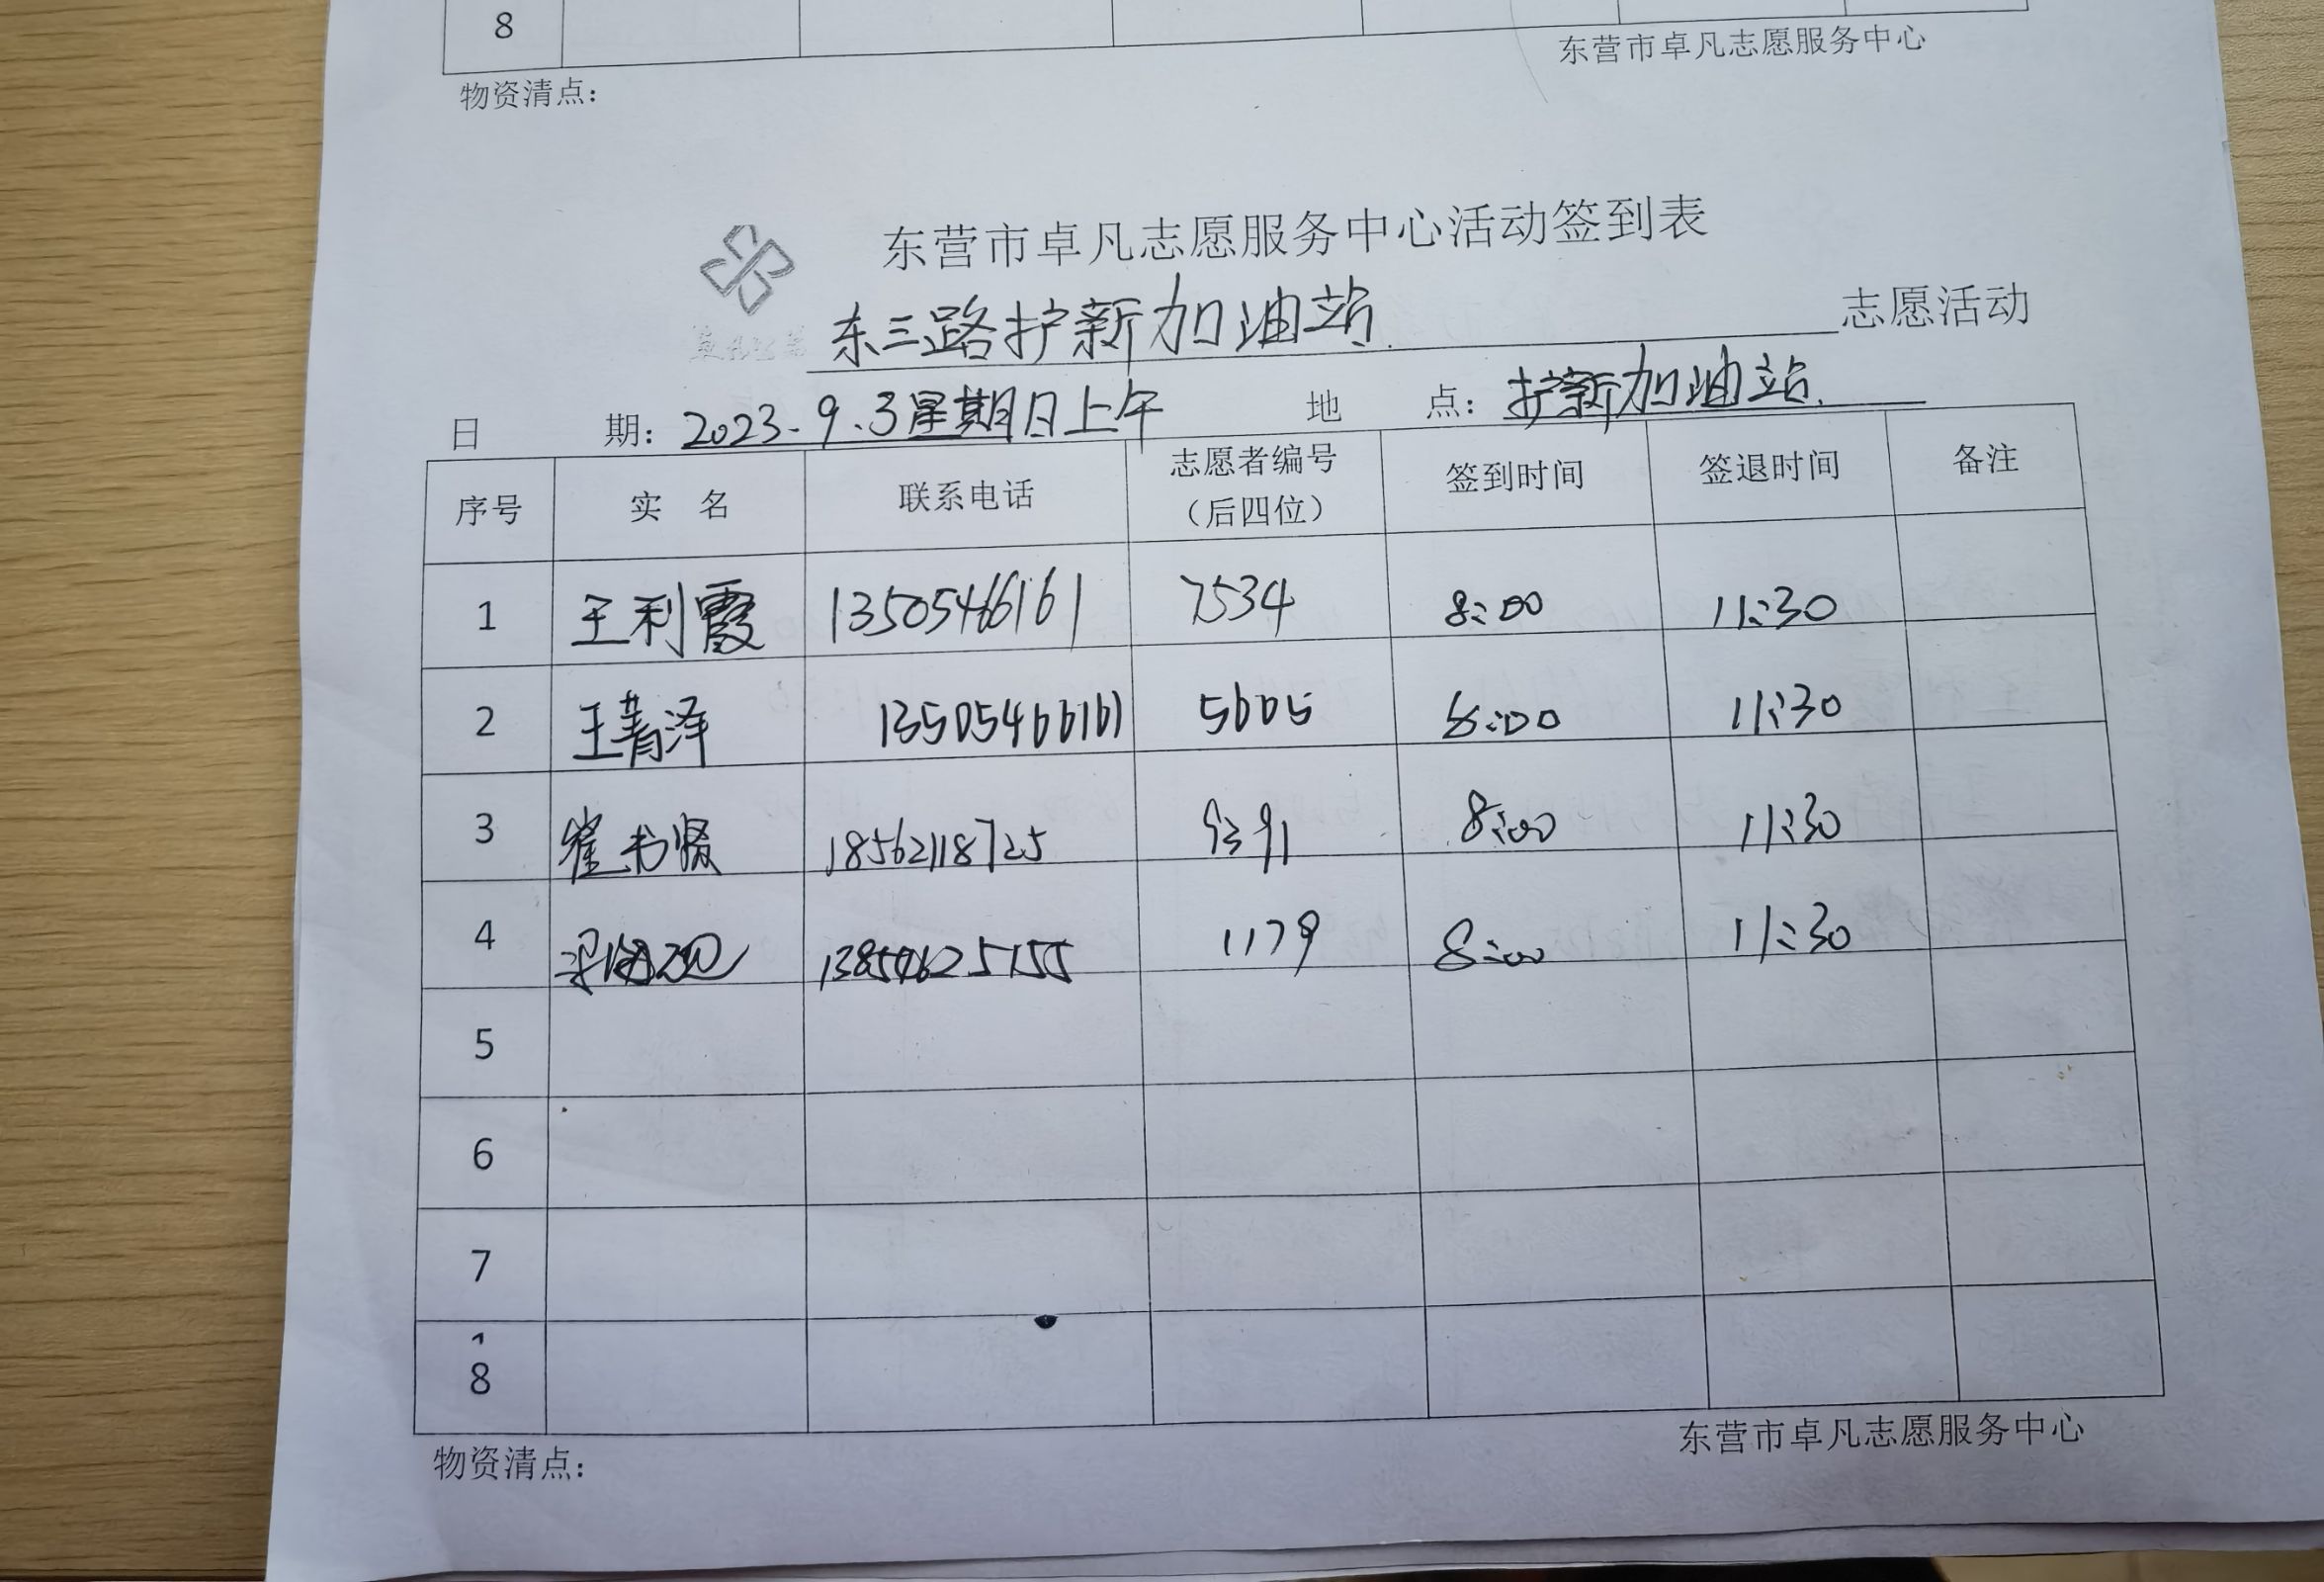 8
东营市卓凡志愿服务中心
物资清点：
东营市卓凡志愿服务中心活动签到表
东三路护新加油站 志愿活动
日期：2023.9.3星期日上午 地点：护新加油站.
序号 实名 联系电话 志愿者编号（后四位） 签到时间 签退时间 备注
1 王利霞 13505466161 7534 8:00 11:30
2 王菁泽 13505466161 5605 8:00 11:30
3 崔书贤 18562118725 9391 8:00 11:30
4 13854625155 1179 8:00 11:30
5
6
7
8
东营市卓凡志愿服务中心
物资清点：